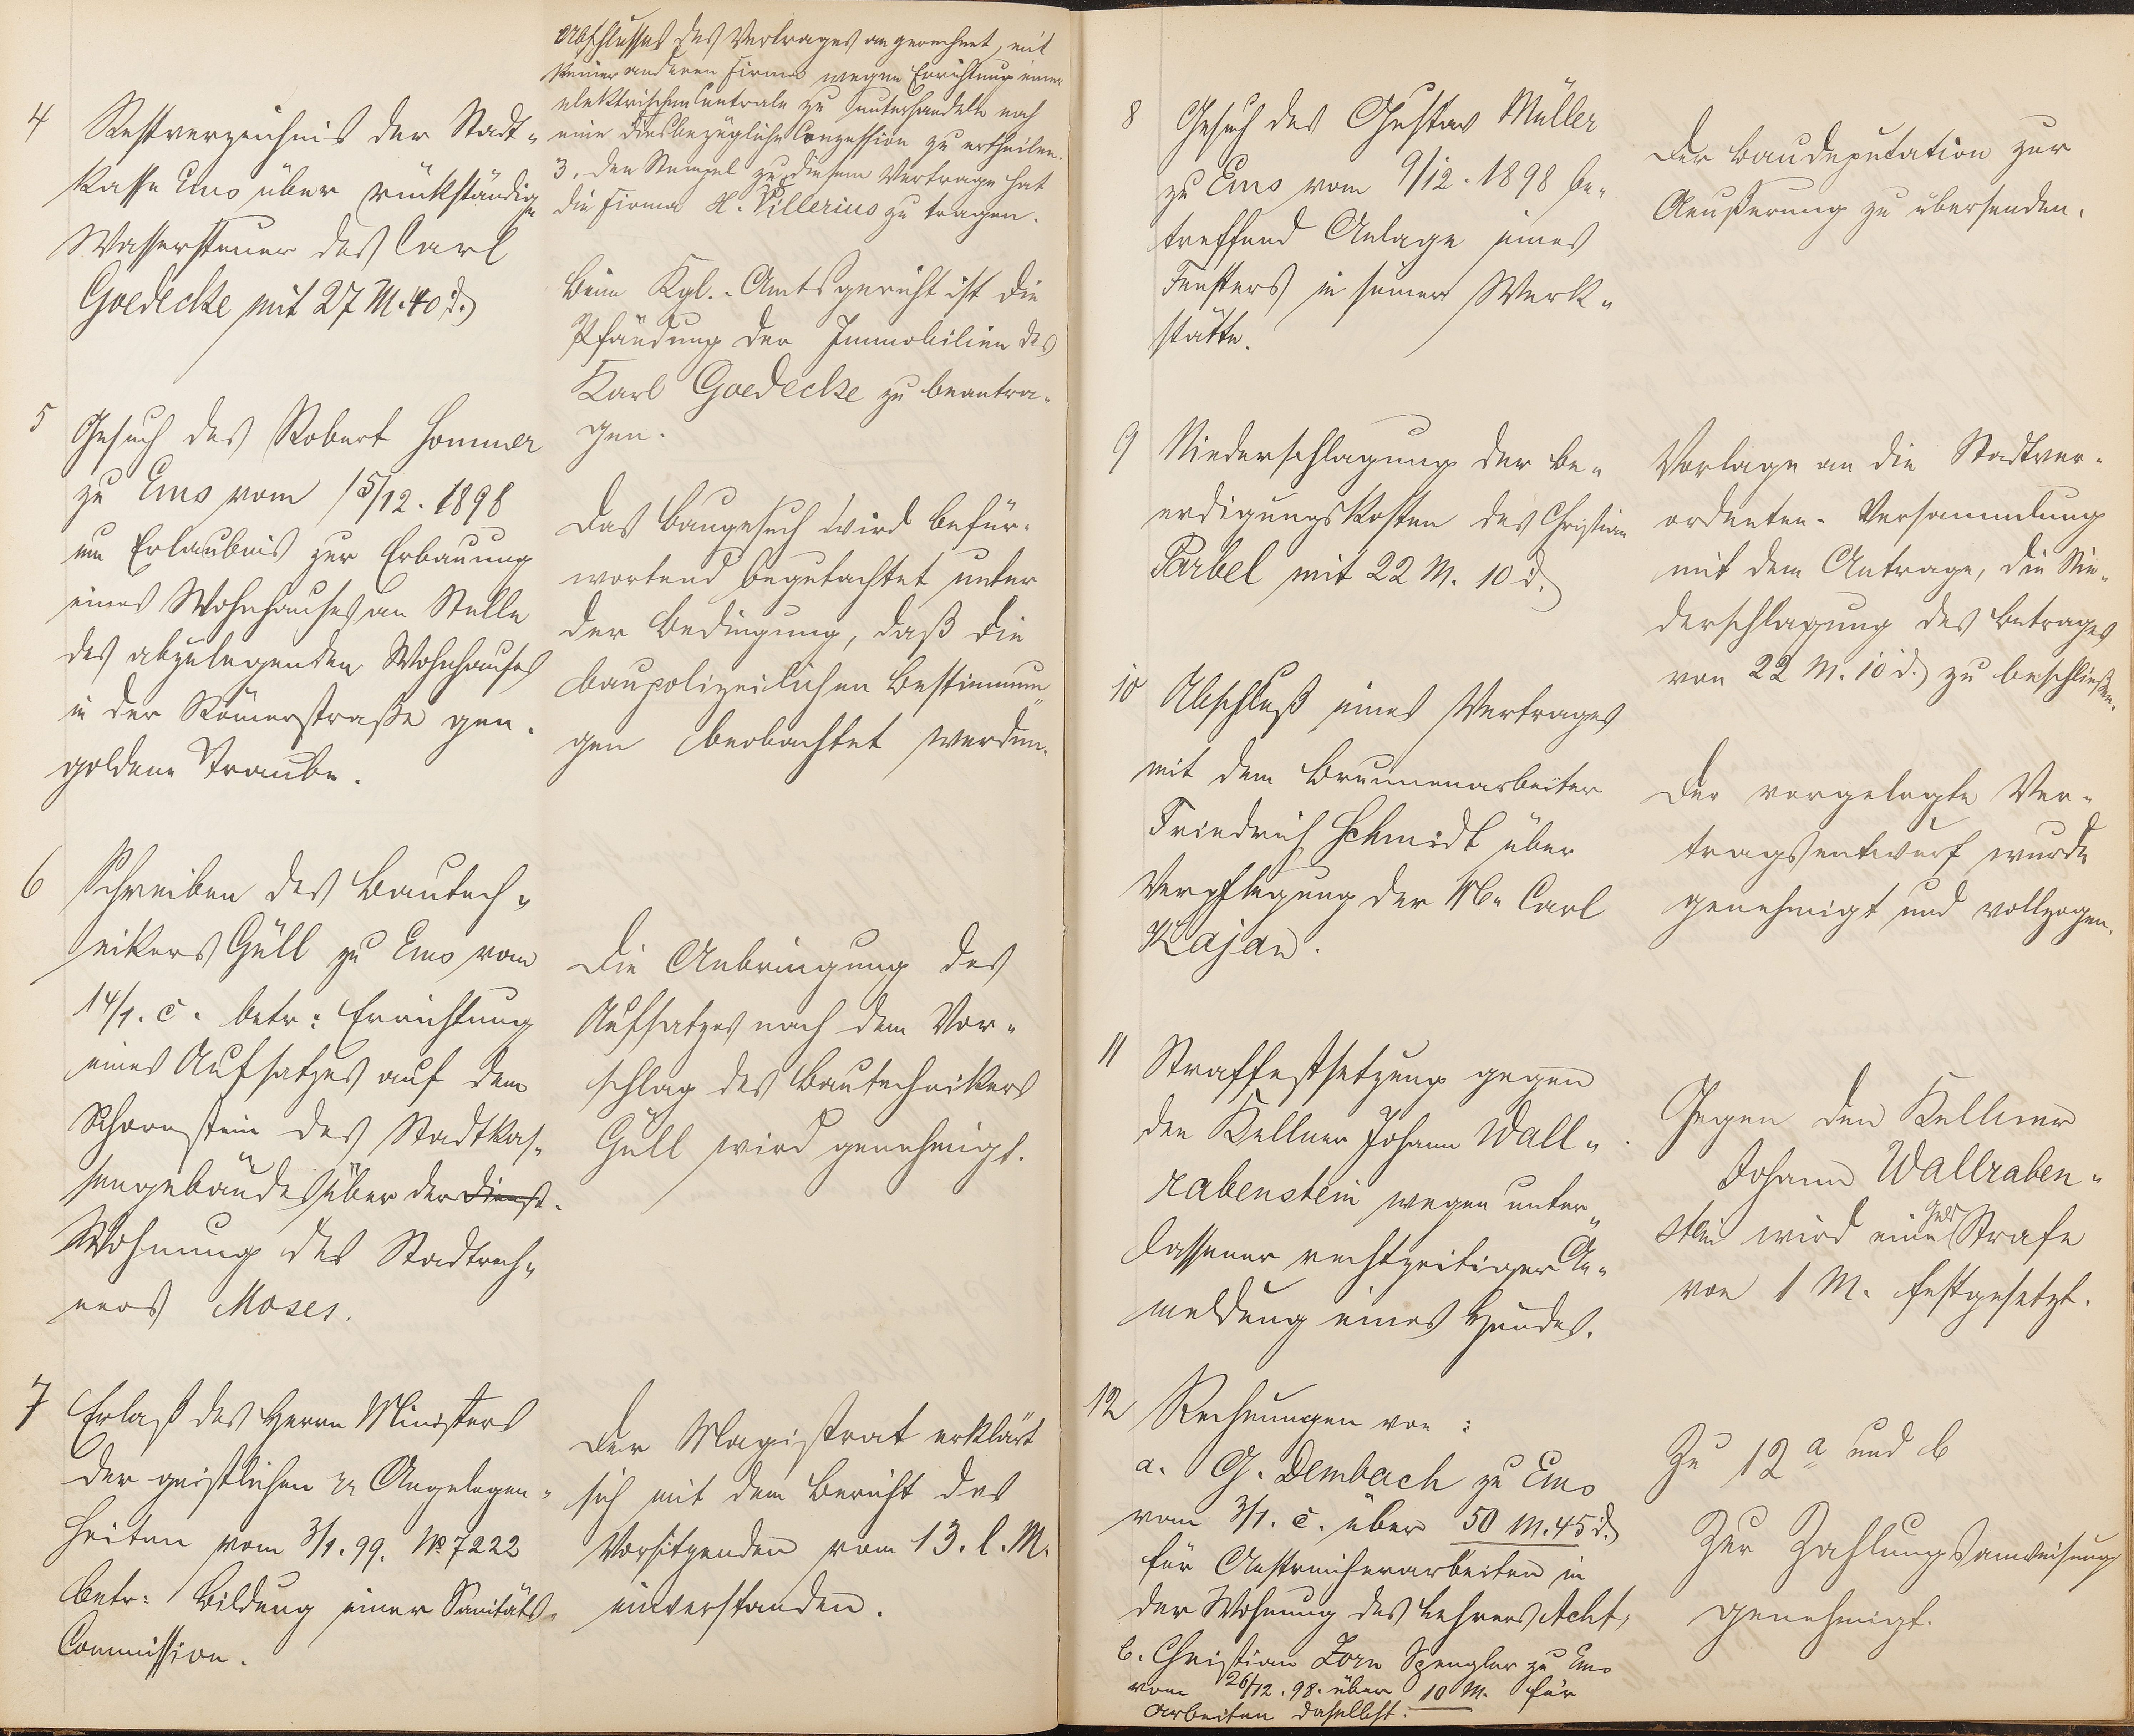 Abschlusses des Vertrages an gerechnet, mit
keiner anderen Firma wegen Errichtung einer
elektrischen Centrale zu unterhandeln noch
eine diesbezügliche Conzession zu ertheilen.
3. Den Stempel zu diesem Vertrage hat
die Firma H. Villerius zu tragen.
4 Restverzeichnis der Stadt-
kasse Ems über rückständige
Wassersteuer des Carl
Goedecke mit 27 M. 40 d.
Beim Kgl. Amtsgericht ist die
Pfändung der Immobilien des
Karl Goedecke zu beantra-
gen.
5 Gesuch des Robert Hommer
zu Ems vom 15/12. 1898
um Erlaubnis zur Erbauung
eines Wohnhauses an Stelle
des abzulegenden Wohnhauses
in der Römerstraße gen.
goldene Traube.
Das Baugesuch wird befür-
wortend begutachtet unter
der Bedingung, daß die
baupolizeilichen Bestimmun-
gen beobachtet werden.
6 Schreiben des Bautech-
nikers Güll zu Ems vom
14/1. c. betr: Errichtung
eines Aufsatzes auf dem
Schornstein des Stadtkas-
sengebäudes über der Dienst-
Wohnung des Stadtrech-
ners Moses.
Die Anbringung des
Aufsatzes nach dem Vor-
schlag des Bautechnikers
Güll wird genehmigt.
7 Erlaß des Herrn Ministers
der geistlichen pp Angelegen-
heiten vom 3/1. 99. No 7222
betr: Bildung einer Sanitäts-
Commission.
Der Magistrat erklärt
sich mit dem Bericht des
Vorsitzenden vom 13. l. M.
einverstanden.
8 Gesuch des Gustav Müller
zu Ems vom 9/12. 1898 be-
treffend Anlage eines
Fensters in seiner Werk-
stätte.
Der Baudeputation zur
Aeußerung zu übersenden.
9 Niederschlagung der Be-
erdigungskosten des Christian
Parbel mit 22 M. 10 d.
Vorlage an die Stadtver-
ordneten-Versammlung
mit dem Antrage, die Nie-
derschlagung des Betrages
von 22 M. 10 d. zu beschließen.
10 Abschluß eines Vertrages
mit dem Brunnenarbeiter
Friedrich Schmidt über
Verpflegung der Carl
Kajan.
Der vorgelegte Ver-
tragsentwurf wurde
genehmigt und vollzogen.
11 Straffestsetzung gegen
den Kellner Johann Wall-
rabenstein wegen unter-
lassener rechtzeitiger An-
meldung eines Hundes.
Gegen den Kellner
Johann Wallraben-
stein wird eine Geld Strafe
von 1 M. festgesetzt.
12 Rechnungen von:
a. G. Dembach zu Ems
vom 3/1. c. über 50 M. 45 d.
für Anstreicherarbeiten in
der Wohnung des Lehrers Acht,
b. Christian Zorn Spengler zu Ems
vom 26/12. 98. über 10 M. für
Arbeiten daselbst.
Zu 12 a und b
Zur Zahlungsanweisung
genehmigt.